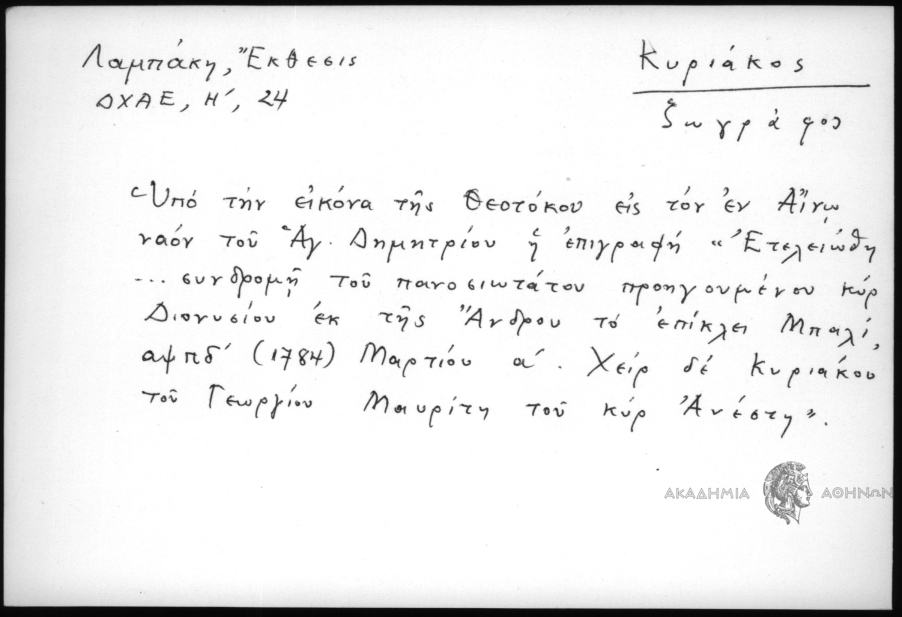 Λαμπάκη, Ἔκθεσις
ΔΧΑΕ, Η´, 24
Κυριάκος
ζωγράφος
Ὑπό τήν εἰκόνα τῆς Θεοτόκου εἰς τόν ἐν Αἴνῳ
ναόν τοῦ Ἁγ. Δημητρίου ἡ ἐπιγραφή «Ἐτελειώθη
... συνδρομῇ τοῦ πανοσιωτάτου προηγουμένου κύρ
Διονυσίου ἐκ τῆς Ἄνδρου τό ἐπίκλει Μπαλί,
αψπδ´ (1784) Μαρτίου α´. Χείρ δέ Κυριάκου
τοῦ Γεωργίου Μαυρίτη τοῦ κύρ Ἀνέστη».
ΑΚΑΔΗΜΙΑ ΑΘΗΝΩΝ